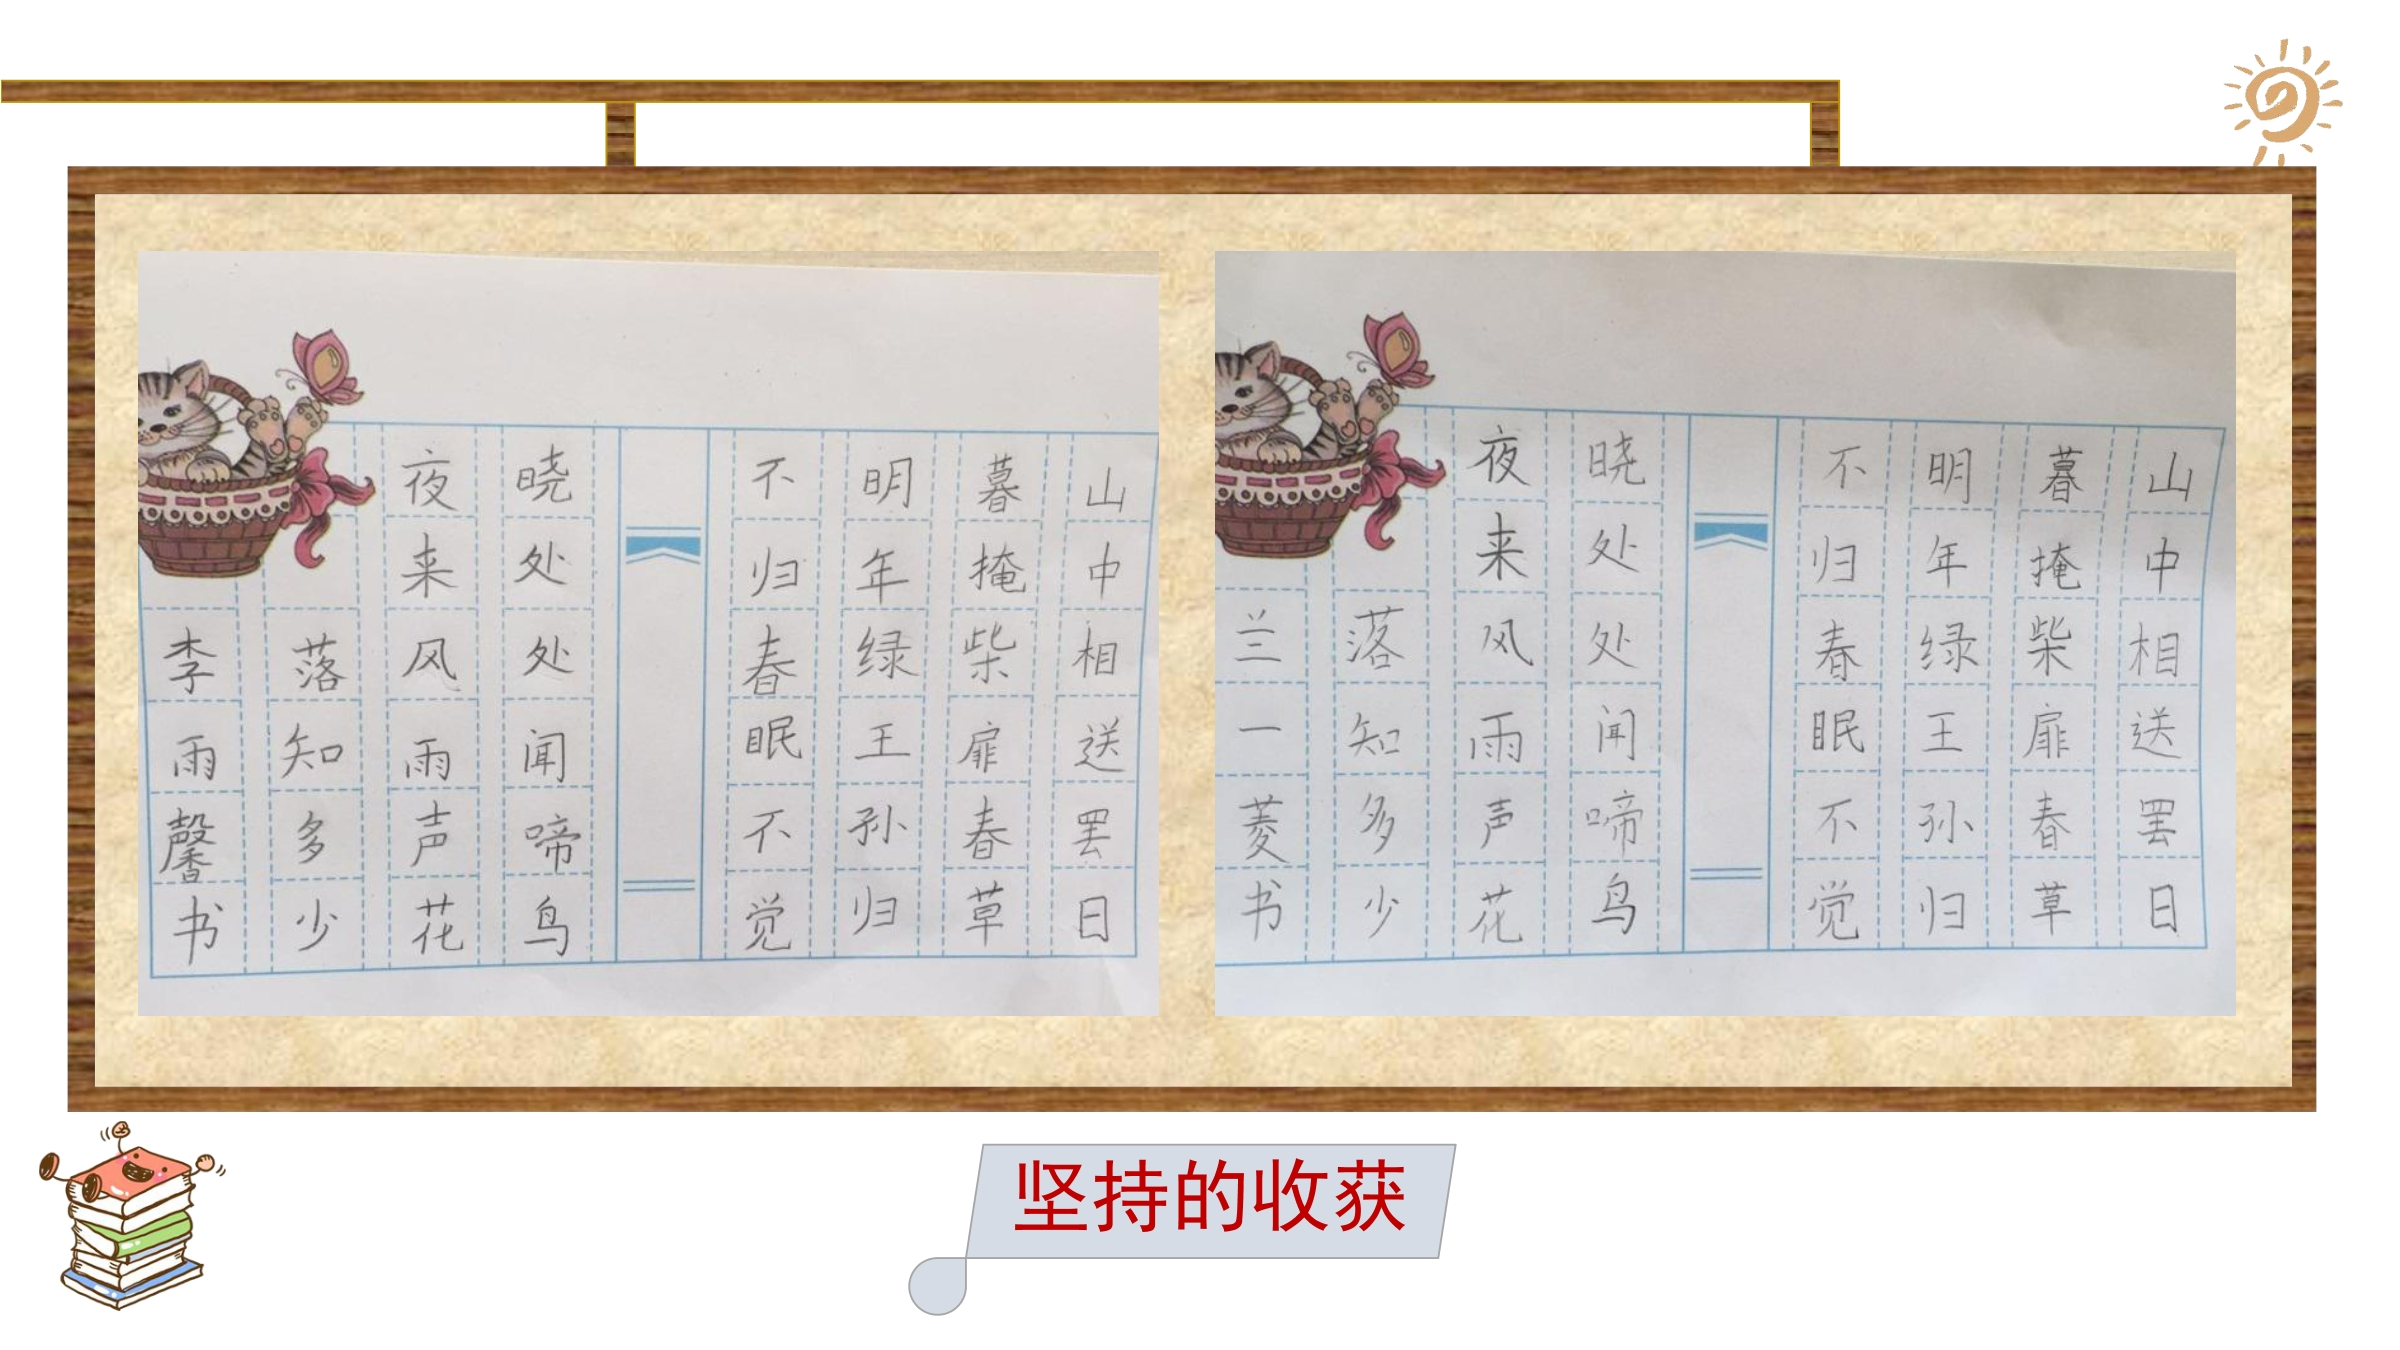 山中相送罢日
暮掩柴扉春草
明年绿王孙归
不归春眠不觉
晓处处闻啼鸟
夜来风雨声花
落知多少
李雨馨书
山中相送罢日
暮掩柴扉春草
明年绿王孙归
不归春眠不觉
晓处处闻啼鸟
夜来风雨声花
落知多少
兰一菱书
坚持的收获